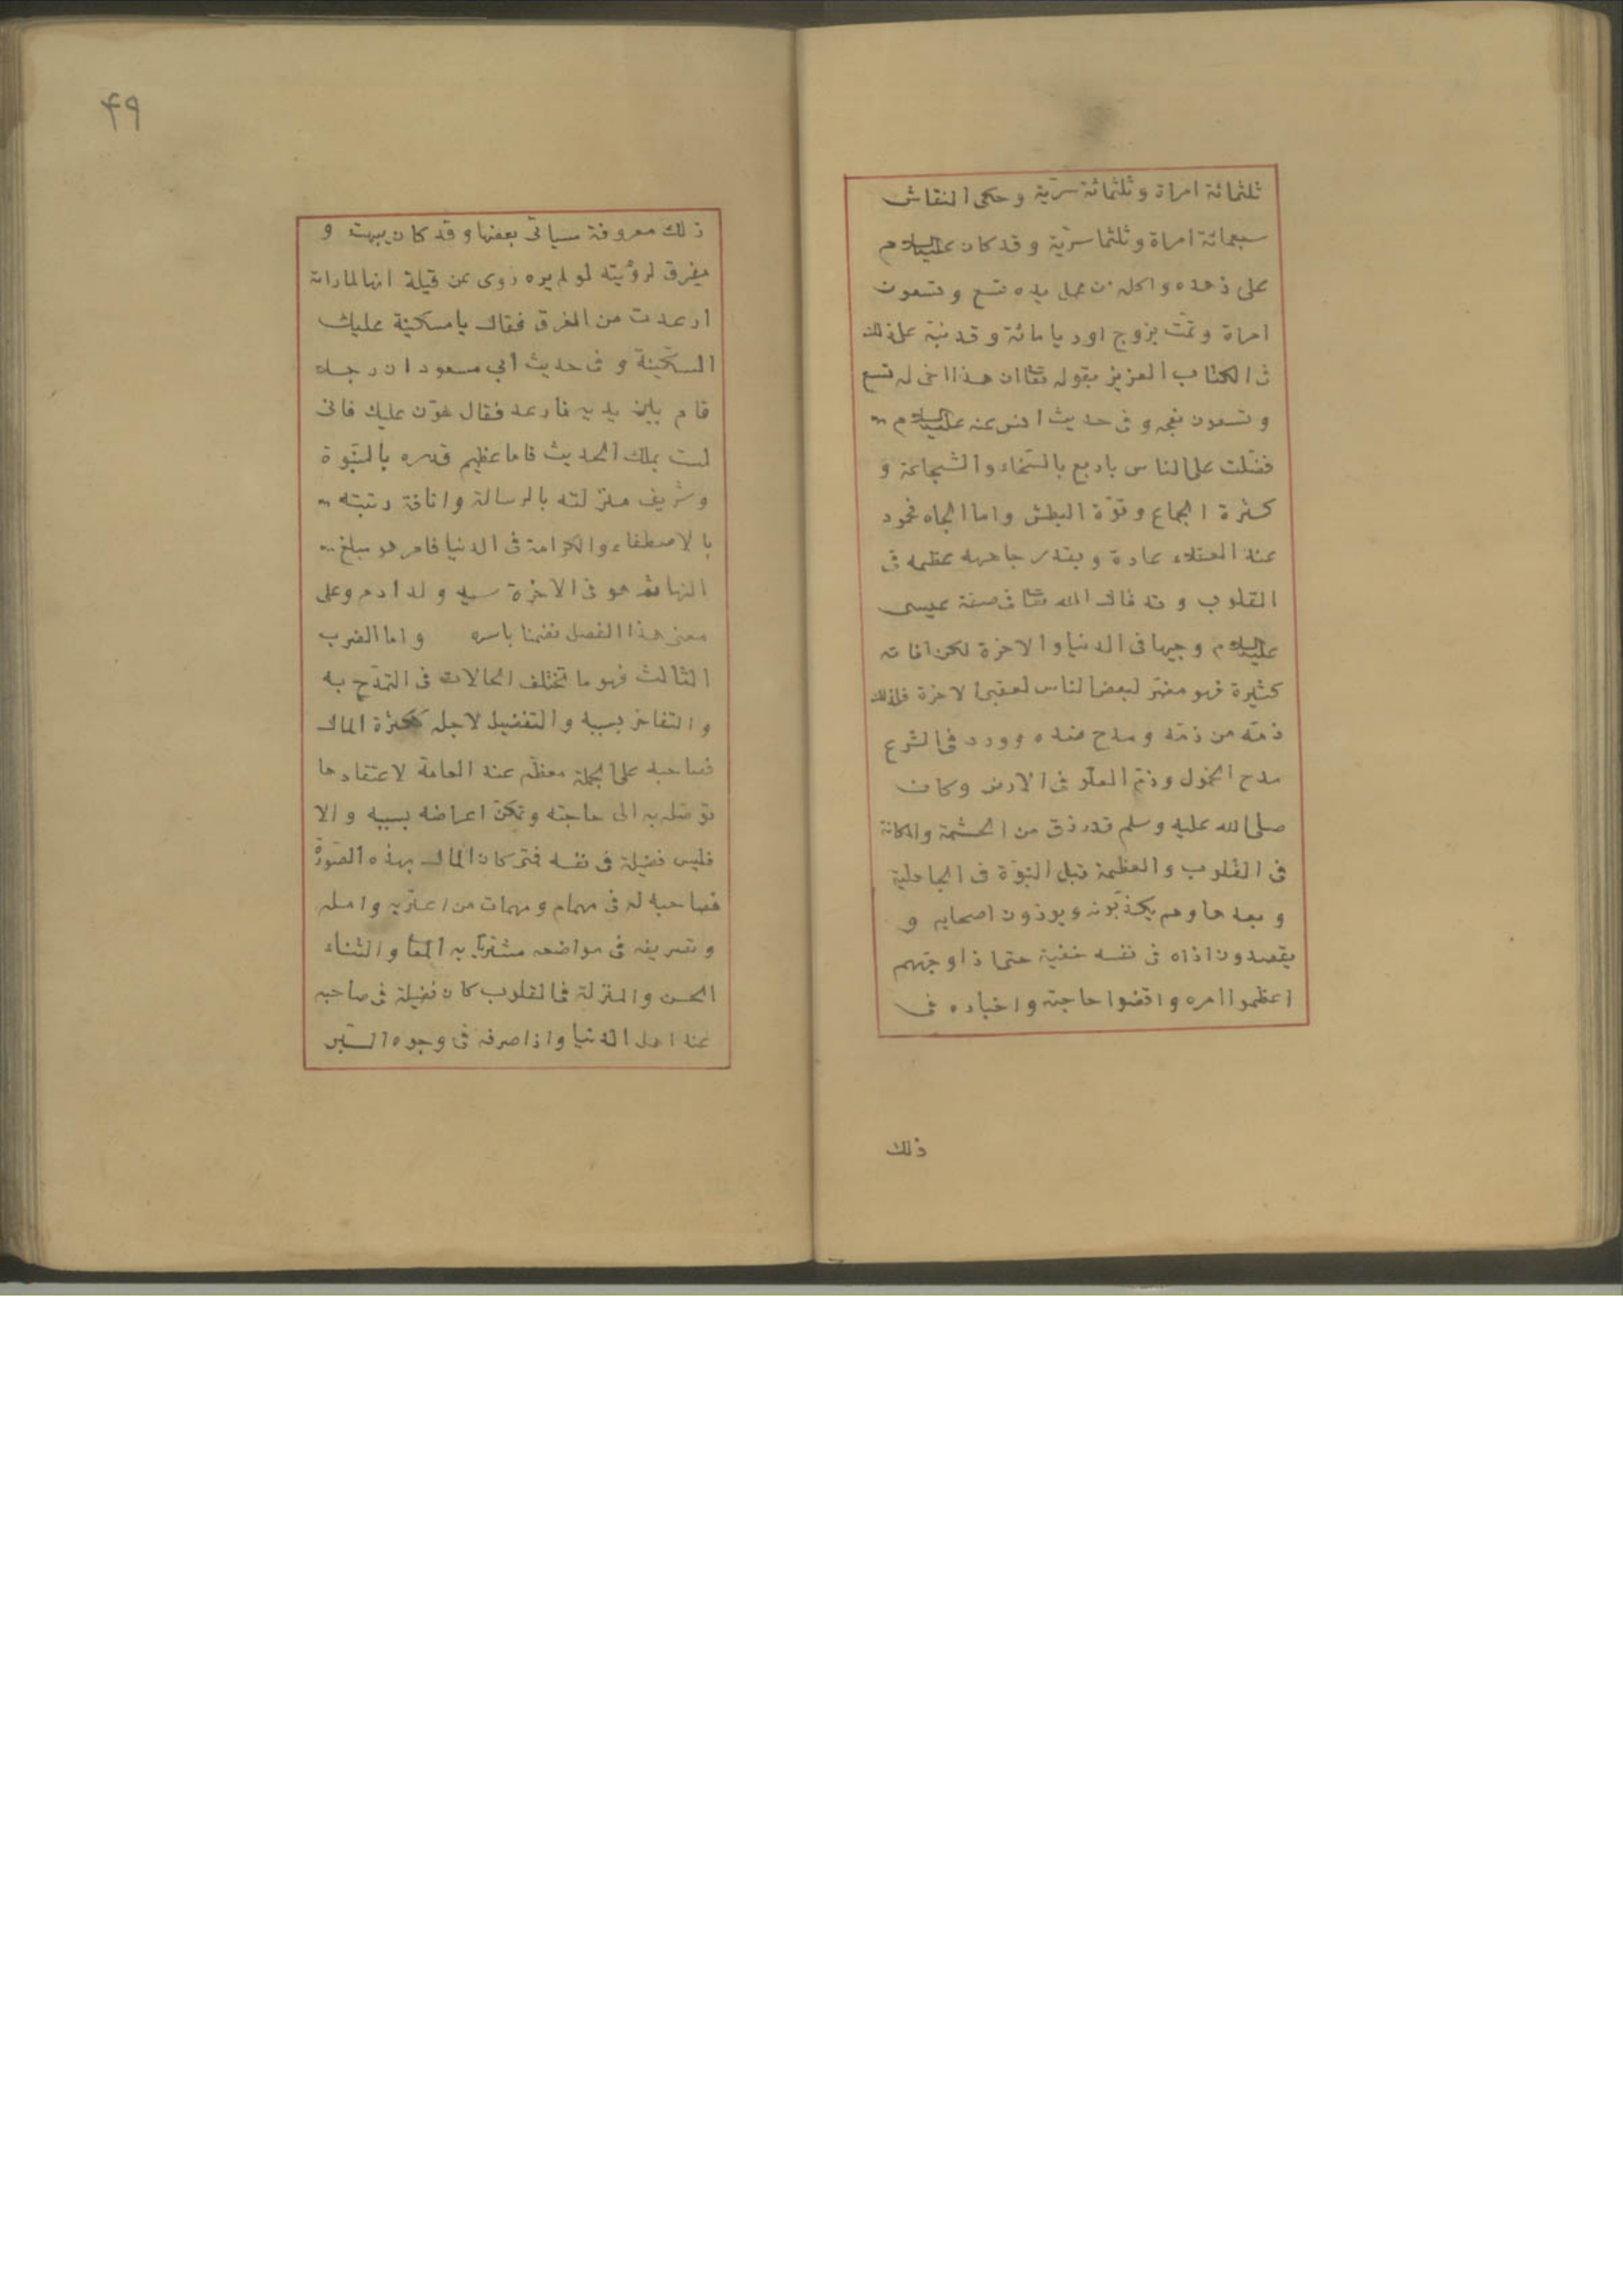 ثلثمائة امراة وثلثمائة سرّية وحكى النقاش
سبعمائة امراة وثلثما سرّية وقد كان عليه السلام
على زهده واكله من عمل يده تسع وتسعون
امراة وتمّت بزوج اوريا مائة وقد نبّه على ذلك
فى الكتاب العزيز بقوله تعا ان هذا اخى له تسع
وتسعون نعجه وفى حديث انس عنه عليه السلام
فضّلت على الناس باربع بالسّخاء والشّجاعة و
كثرة الجماع وقوّة البطش واما الجاه فمحود
عند العقلاء عادة وبقدر جاهه عظمه فى
القلوب وقد قال الله تعا فى صفة عيسى
عليه السلام وجيها فى الدنيا والاخرة لكن افاته
كثيرة فهو مضرّ لبعض الناس لعقبى الاخرة فلذلك
ذمّه من ذمّه ومدح ضده وورد فى الشرع
مدح الخمول وذمّ العلّو فى الارض وكان
صلى الله عليه وسلم قد رزق من الحشمة والمكانة
فى القلوب والعظمة قبل النبوّة فى الجاهلية
وبعدها وهم يكذّبونه ويوذون اصحابه و
يقصدون اذاه فى نفسه خفية حتى اذا وجّههم
اعظموا امره واقضوا حاجته واخباره فى
ذلك
٤٩
ذلك معروفة سياتى بعضها وقد كان يبهت و
يفرق لرؤيته لو لم يره روى عن قيلة انها لما راته
ارعدت من الفرق فقال يا مسكينة عليك
السكّينة وفى حديث ابي مسعود ان رجلا
قام بين يديه فارعد فقال هوّن عليك فانى
لست بملك الحديث فاما عظيم قدره بالنبّوة
وشريف منزلته بالرسالة وانافة رتبته
بالاصطفاء والكرامة فى الدنيا فامر هو مبلغ
النهاية هو فى الاخرة سيد ولد ادم وعلى
معنى هذا الفصل نضمنا باسره واما الضرب
الثالث فهو ما تختلف الحالات فى التمدّح به
والتفاخر بسببه والتفضيل لاجله ككثرة المال
فصاحبه على الجملة معظّم عند العامة لاعتقادها
توصّله به الى حاجته وتمكن اعراضه بسببه والا
فليس فضيلة فى نفسه فمتى كان المال بهذه الصّورة
فصاحبه له فى مهمام ومهمات من اعتريه وامله
وتصريفه فى مواضعه مشتريًا به المعا والثناء
الحسن والمنزلة فى القلوب كان فضيلة فى صاحبه
عند اهل الدنيا واذا صرفه فى وجوه السّبر